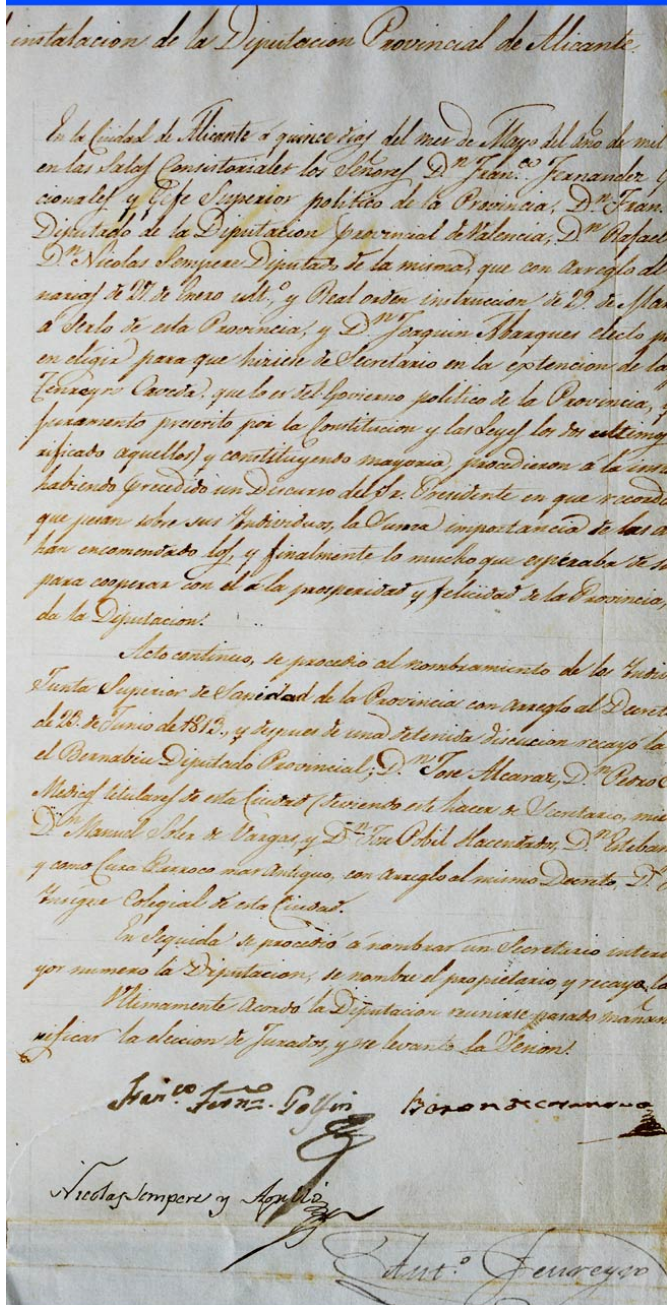 instalacion de la Diputacion Provincial de Alicante.
En la Ciudad de Alicante á quince dias del mes de Mayo del año de mil
en las Salas Consistoriales los Señores D.n Fran.co Fernandez
cionales y Gefe Superior politico de la Provincia, D.n Fran
Diputado de la Diputacion provincial de Valencia, D.n Rafael
D.n Nicolas Sempere Diputado de la misma, que con arreglo al
narias de 27 de Enero ult.o y Real orden instruccion de 29 de Mar
a serlo de esta Provincia, y D.n Joaquin Abargues electo p
en elegir para que hiciese de Secretario en la extencion de la
Tenreyro Caveda que lo es del Govierno politico de la Provincia,
juramento prescrito por la Constitucion y las Leyes los dos ultimos
rificado aquellos) y constituyendo mayoria, procedieron a la ins
habiendo precedido un Discurso del Sr. Presidente en que record
que pesan sobre sus Individuos, la suma importancia de las
han encomendado los, y finalmente lo mucho que esperaba de
para cooperar con él a la prosperidad y felicidad de la Provincia
da la Diputacion.
Acto continuo, se procedió al nombramiento de los Indivi
Junta Superior de Sanidad de la Provincia con arreglo al Decret
de 23 de Junio de 1813, y despues de una detenida discucion recayó la
el Bernabeu Diputado Provincial, D.n Jose Alcaraz, D.n Pedro
Medicos titulares de esta Ciudad (deviendo este hacer de Secretario,
D.n Manuel Soler de Vargas, y D.n Jose Pobil Hacendados, D.n Esteban
y como Cura Parroco mas Antiguo, con arreglo al mismo Decreto, D.n
Insigne Colegial de esta Ciudad.
En seguida se procedió á nombrar un Secretario interi
yor numero la Diputacion, se nombre el propietario, y recayó la
Ultimamente acordó la Diputacion reunirse pasado mañan
rificar la eleccion de Jurados, y se levantó la Sesion.
Fran.co Fern.z Golfin
Nicolas Sempere y
Ant.o Tenreyro